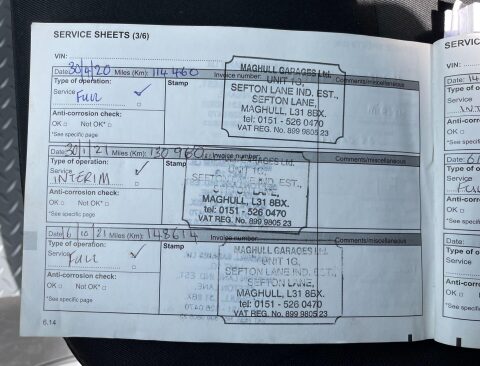 SERVICE SHEETS (3/6)
VIN:
Date: 30/9/20 Miles (Km): 114460 Invoice number: Comments/miscellaneous
Type of operation:
Service
Full ✓
Anti-corrosion check:
OK □ Not OK* □
*See specific page
MAGHULL GARAGES Ltd.
UNIT 1G,
SEFTON LANE IND. EST.,
SEFTON LANE,
MAGHULL, L31 8BX.
tel: 0151 - 526 0470
VAT REG. No. 899 9805 23
Date: 30/1/21 Miles (Km): 130960 Invoice number: Comments/miscellaneous
Type of operation: Stamp
Service
INTERIM ✓
Anti-corrosion check:
OK □ Not OK* □
*See specific page
UNIT 1G,
MAGHULL, L31 8BX.
tel: 0151 - 526 0470
VAT REG. No. 899 9805 23
Date: 6/10/21 Miles (Km): 148614 Invoice number: Comments/miscellaneous
Type of operation: Stamp
Service
Full ✓
Anti-corrosion check:
OK □ Not OK* □
*See specific page
MAGHULL GARAGES Ltd.
UNIT 1G,
SEFTON LANE IND. EST.,
SEFTON LANE,
MAGHULL, L31 8BX.
tel: 0151 - 526 0470
VAT REG. No. 899 9805 23
6.14
SERVIC
VIN:
Date: 14
Type of
Service
INT
Anti-cor
OK □
*See spec
Date: 6/
Type of
Service
Full
Anti-cor
OK □
*See spec